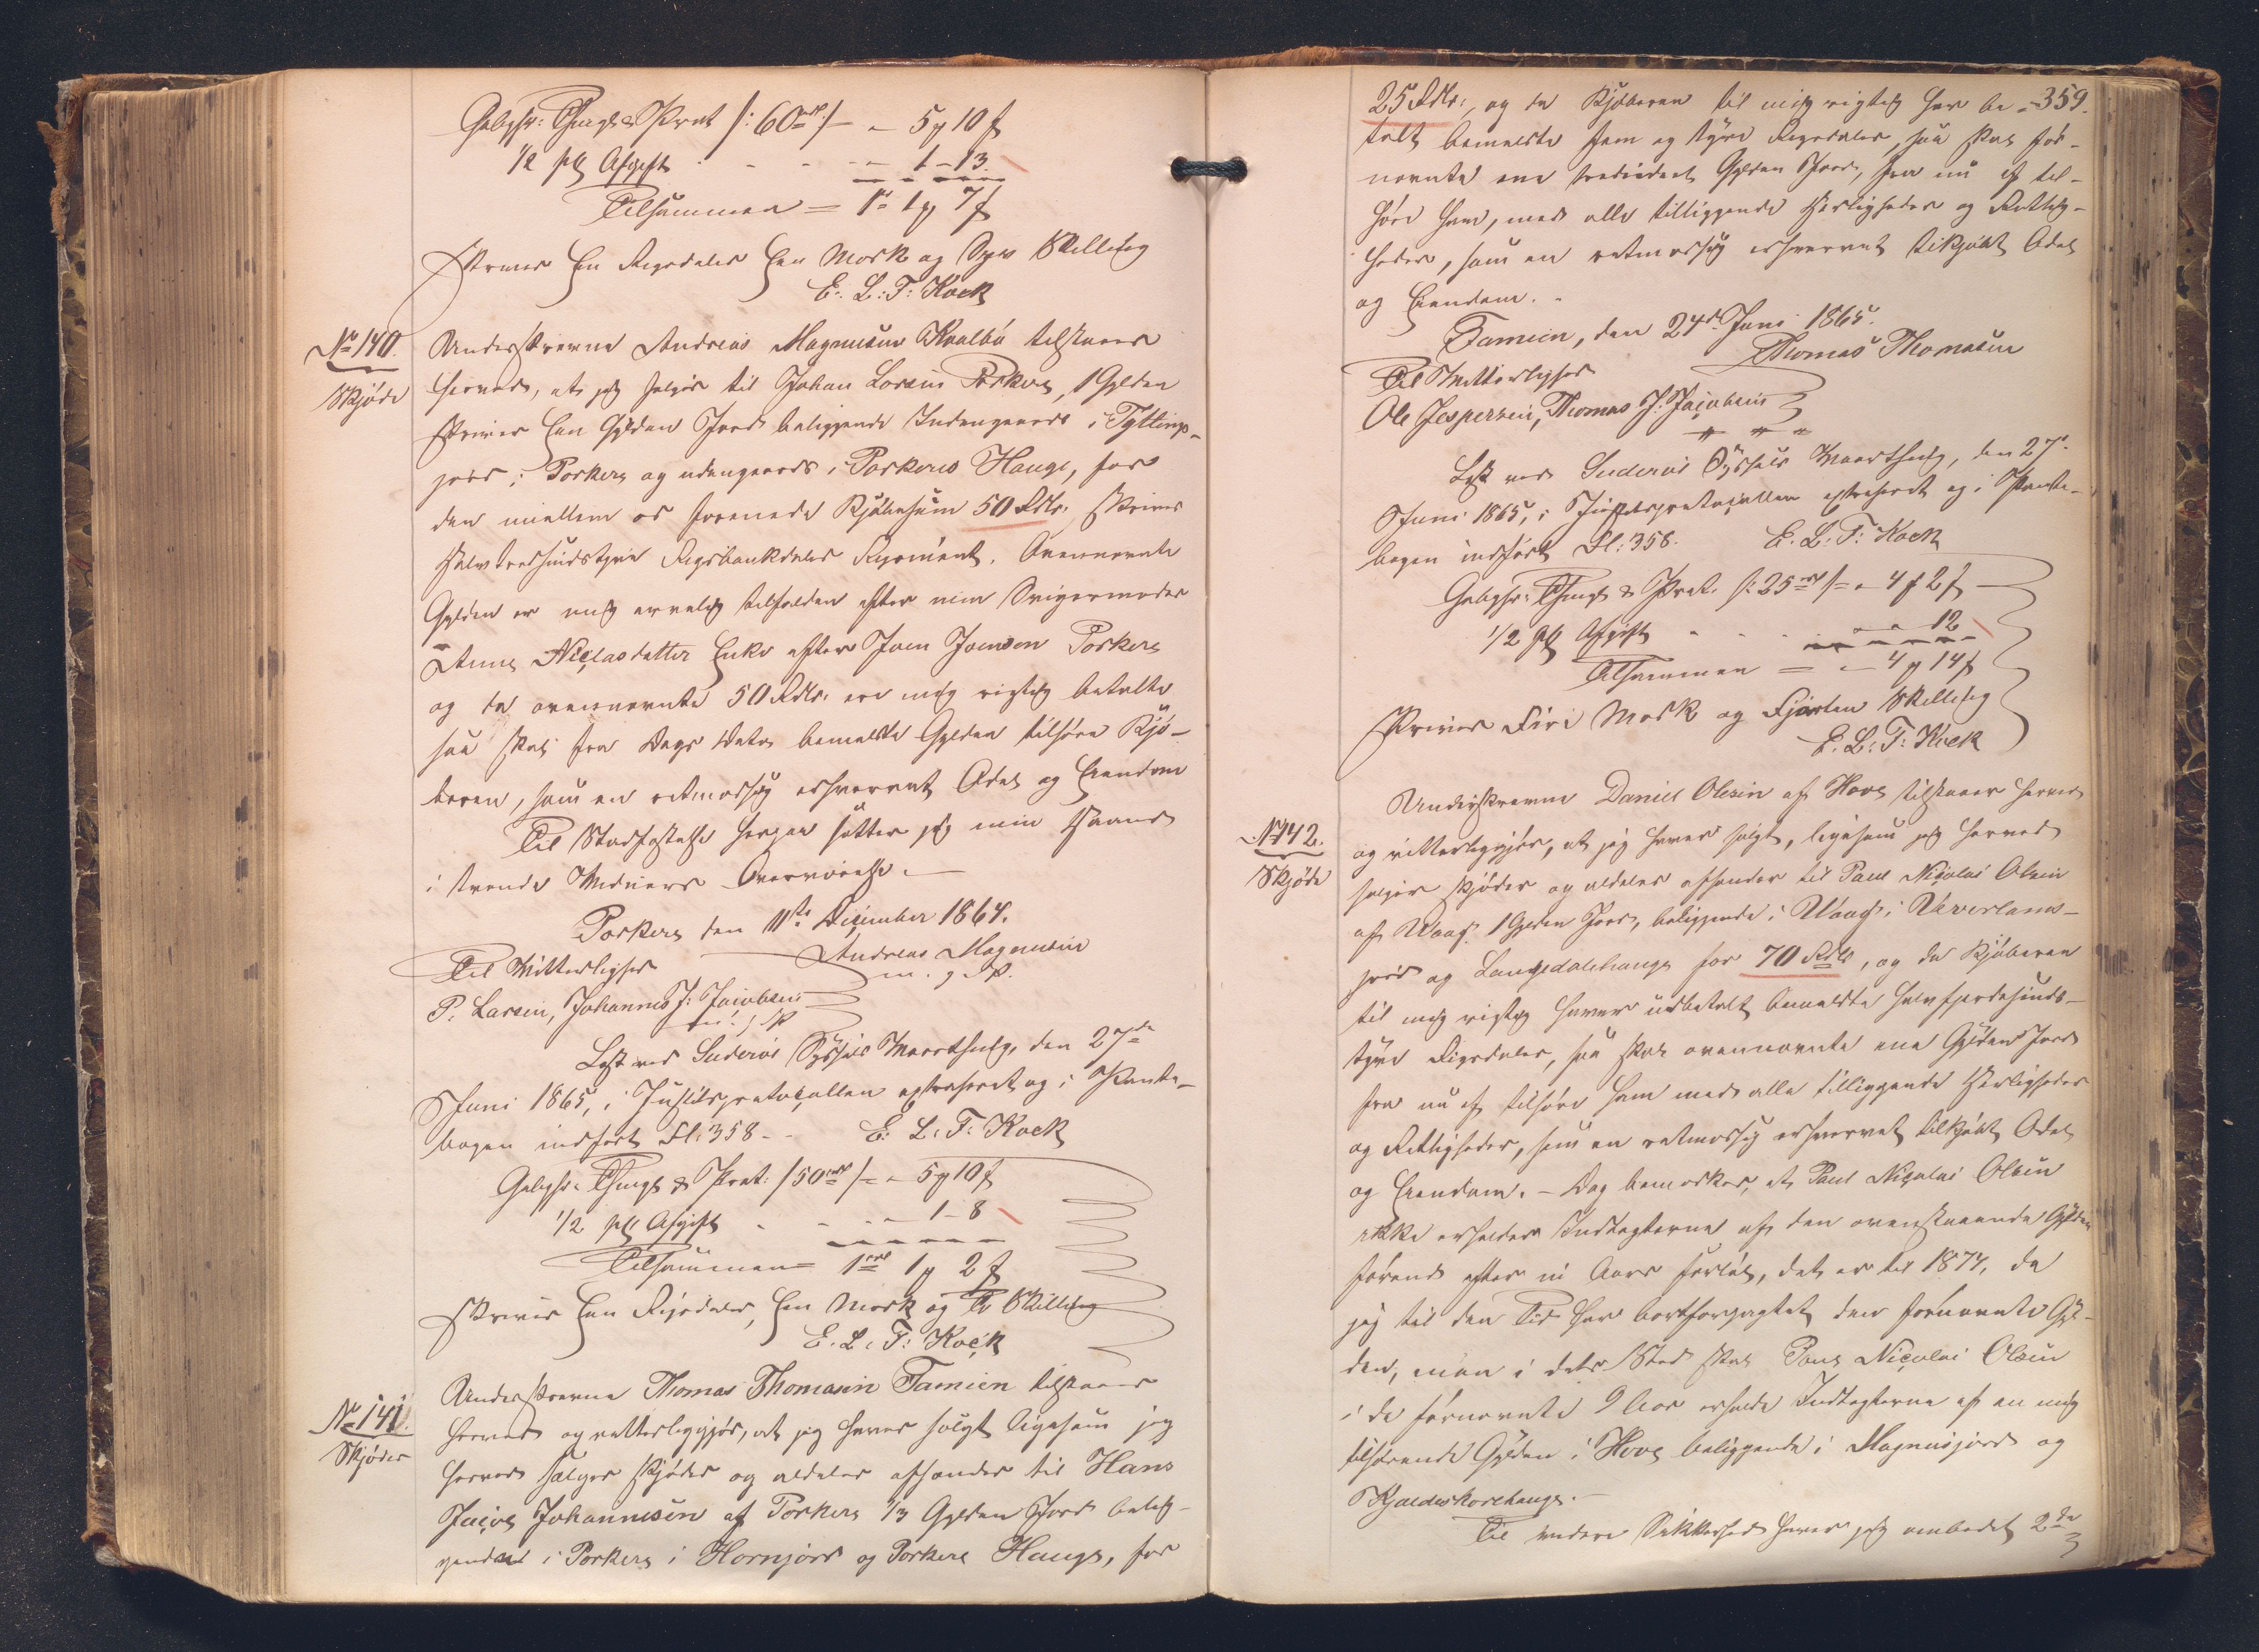 Gebyhr: Thingl & Prot /: 60 rdl :/ - " 5 ₰ 10 ß
1/2 pCt Afgift - - - " 1 - 13
Tilsammen = 1 rd 1 ₰ 7 ß
skriver Een Rigsdaler Een Mark og Syv Skilling
E: L: T: Kock
No 140.
Skjøde
Underskrevne Andreas Magnussen Kvalbø tilstaaer
herved, at jeg sælger til Johan Larsen Porkere, 1 Gylden
skriver Een Gylden Jord beliggende Indengjærds i Tyttings-
jord i Porkere og udengjærds i Porkeres Hauge, for
den mellem os forenede Kjøbesum 50 Rdlr. skriver
Halvtredsindstyve Rigsbankdaler Rigsmynt. Ovennævnte
Gylden er mig arvelig tilfalden efter min Svigermoder
Anna Niclasdatter Enke efter Joen Joensen Porkere
og da ovennævnte 50 Rdlr. ere mig rigtig betalte
saa skal fra Dags Dato bemeldte Gylden tilhøre Kjø-
beren, som en retmæssig erhvervet Odel og Eiendom
Til Stadfæstelse herpaa sætter jeg min Haand
i tvende Vidners Overværelse. -
Porkere den 11te December 1864.
Til Vitterlighed
Andreas Magnussen
m. g. P.
P. Larsen, Johannes J: Jacobsen
m. f. P
Læst ved Suderøe Syssels Vaarthing, den 27de
Juni 1865, i Justitsprotocollen extraheret og i Pante-
bogen indført Fl: 358 - - E: L: T: Kock
Gebyhr: Thingl & Prot: / 50 rdl / = " 5 ₰ 10 ß
1/2 pCt Afgift - - - " 1 - 8
Tilsammen = 1 rdl 1 ₰ 2 ß
skriver Een Rigsdaler, Een Mark og To Skilling
E. L. T: Kock
No 141.
Skjøder
Underskrevne Thomas Thomasen Famien tilstaaer
herved og vitterliggjør, at jeg haver solgt ligesom jeg
herved sælger skjøder og aldeles afhænder til Hans
Jacob Johannesen af Porkere 1/3 Gylden Jord belig-
gendes i Porkere i Hornjord og Porkere Hauge, for
359.
25 Rdlr:, og da Kjøberen til mig rigtig har be-
talt bemeldte fem og tyve Rigsdaler, saa skal for-
nævnte ene trediedeel Gylden Jord, fra nu af til-
høre ham, med alle tilliggende Herligheder og Rettig-
heder, som en retmæssig erhvervet tilkjøbt Odel
og Eiendom. -
Famien, den 24de Juni 1865.
Thomas Thomasen
Til Vitterlighed
Ole Jespersen, Thomas J. Jacobsen
Læst ved Suderøe Syssels Vaarthing, den 27de
Juni 1865, i Justitsprotocollen extraheret og i Pante-
bogen indført Fl: 358. E. L. T: Kock
Gebyhr: Thingl & Prot. /: 25 rdl / = " 4 ₰ 2 ß
1/2 pCt Afgift - - - " " 12
Tilsammen = " 4 ₰ 14 ß
skriver Fire Mark og Fjorten Skilling
E. L: T: Kock
No 142.
Skjøde
Underskrevne Daniel Olesen af Hove tilstaaer herved
og vitterliggjør, at jeg haver solgt, ligesom jeg herved
sælger skjøder og aldeles afhænder til Paul Nicolai Olsen
af Waag 1 Gylden Jord, beliggende i Waag i
jord og Langedalshauge for 70 Rdlr, og da Kjøberen
til mig rigtig haver udbetalt bemeldte halvfjerdesinds-
tyve Rigsdaler, saa skal ovennævnte ene Gylden Jord
fra nu af tilhøre ham med alle tilliggende Herligheder
og Rettigheder, som en retmæssig erhvervet tilkjøbt Odel
og Eiendom. - Dog bemærkes, at Paul Nicolai Olsen
ikke erholder Indtægterne af den ovenstaaende Gylden
førend efter ni Aars Forløb, det er til 1874, da
jeg til den Tid har bortforpagtet den fornævnte Gyl-
den, men i dets Sted skal Paul Nicolai Olsen
i de fornævnte 9 Aar erholde Indtægterne af en mig
tilhørende Gylden i Hove beliggende i Magnusjord og
Kjældeskorehauge. -
Til videre Sikkerhed haver jeg ombedet 2de